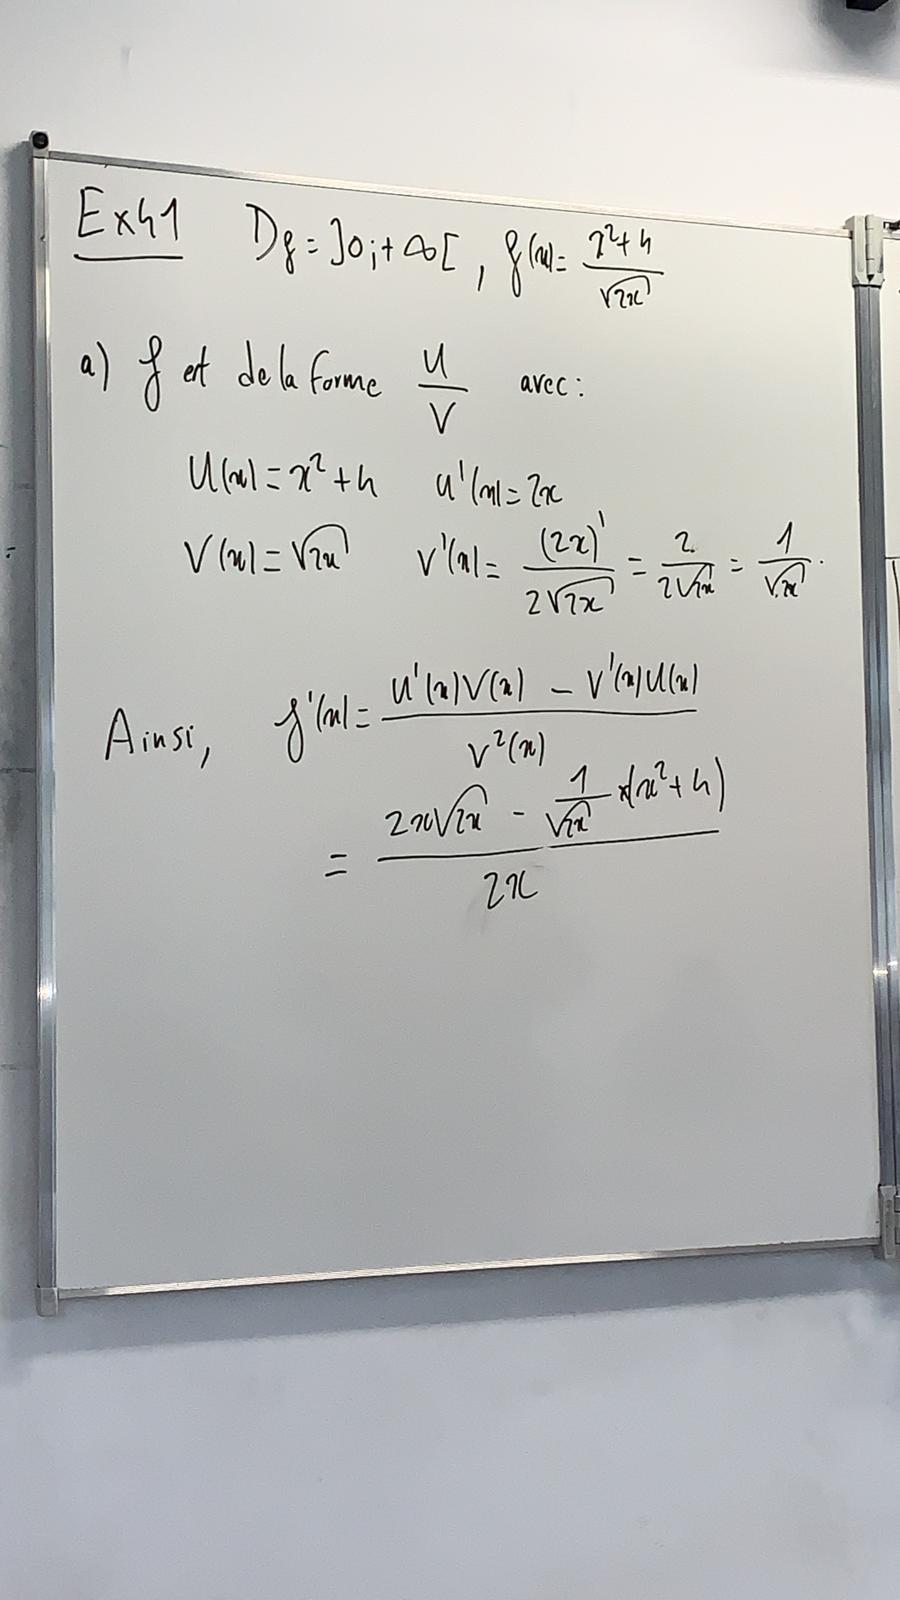 Ex41 Df = ]0;+∞[, f(x) = (x²+4)/√2x
a) f est de la forme U/V avec:
U(x) = x²+4 u'(x) = 2x
V(x) = √2x v'(x) = (2x)'/2√2x = 2/2√2x = 1/√2x.
Ainsi, f'(x) = (u'(x)v(x) - v'(x)u(x))/v²(x)
= (2x√2x - 1/√2x × (x²+4))/2x